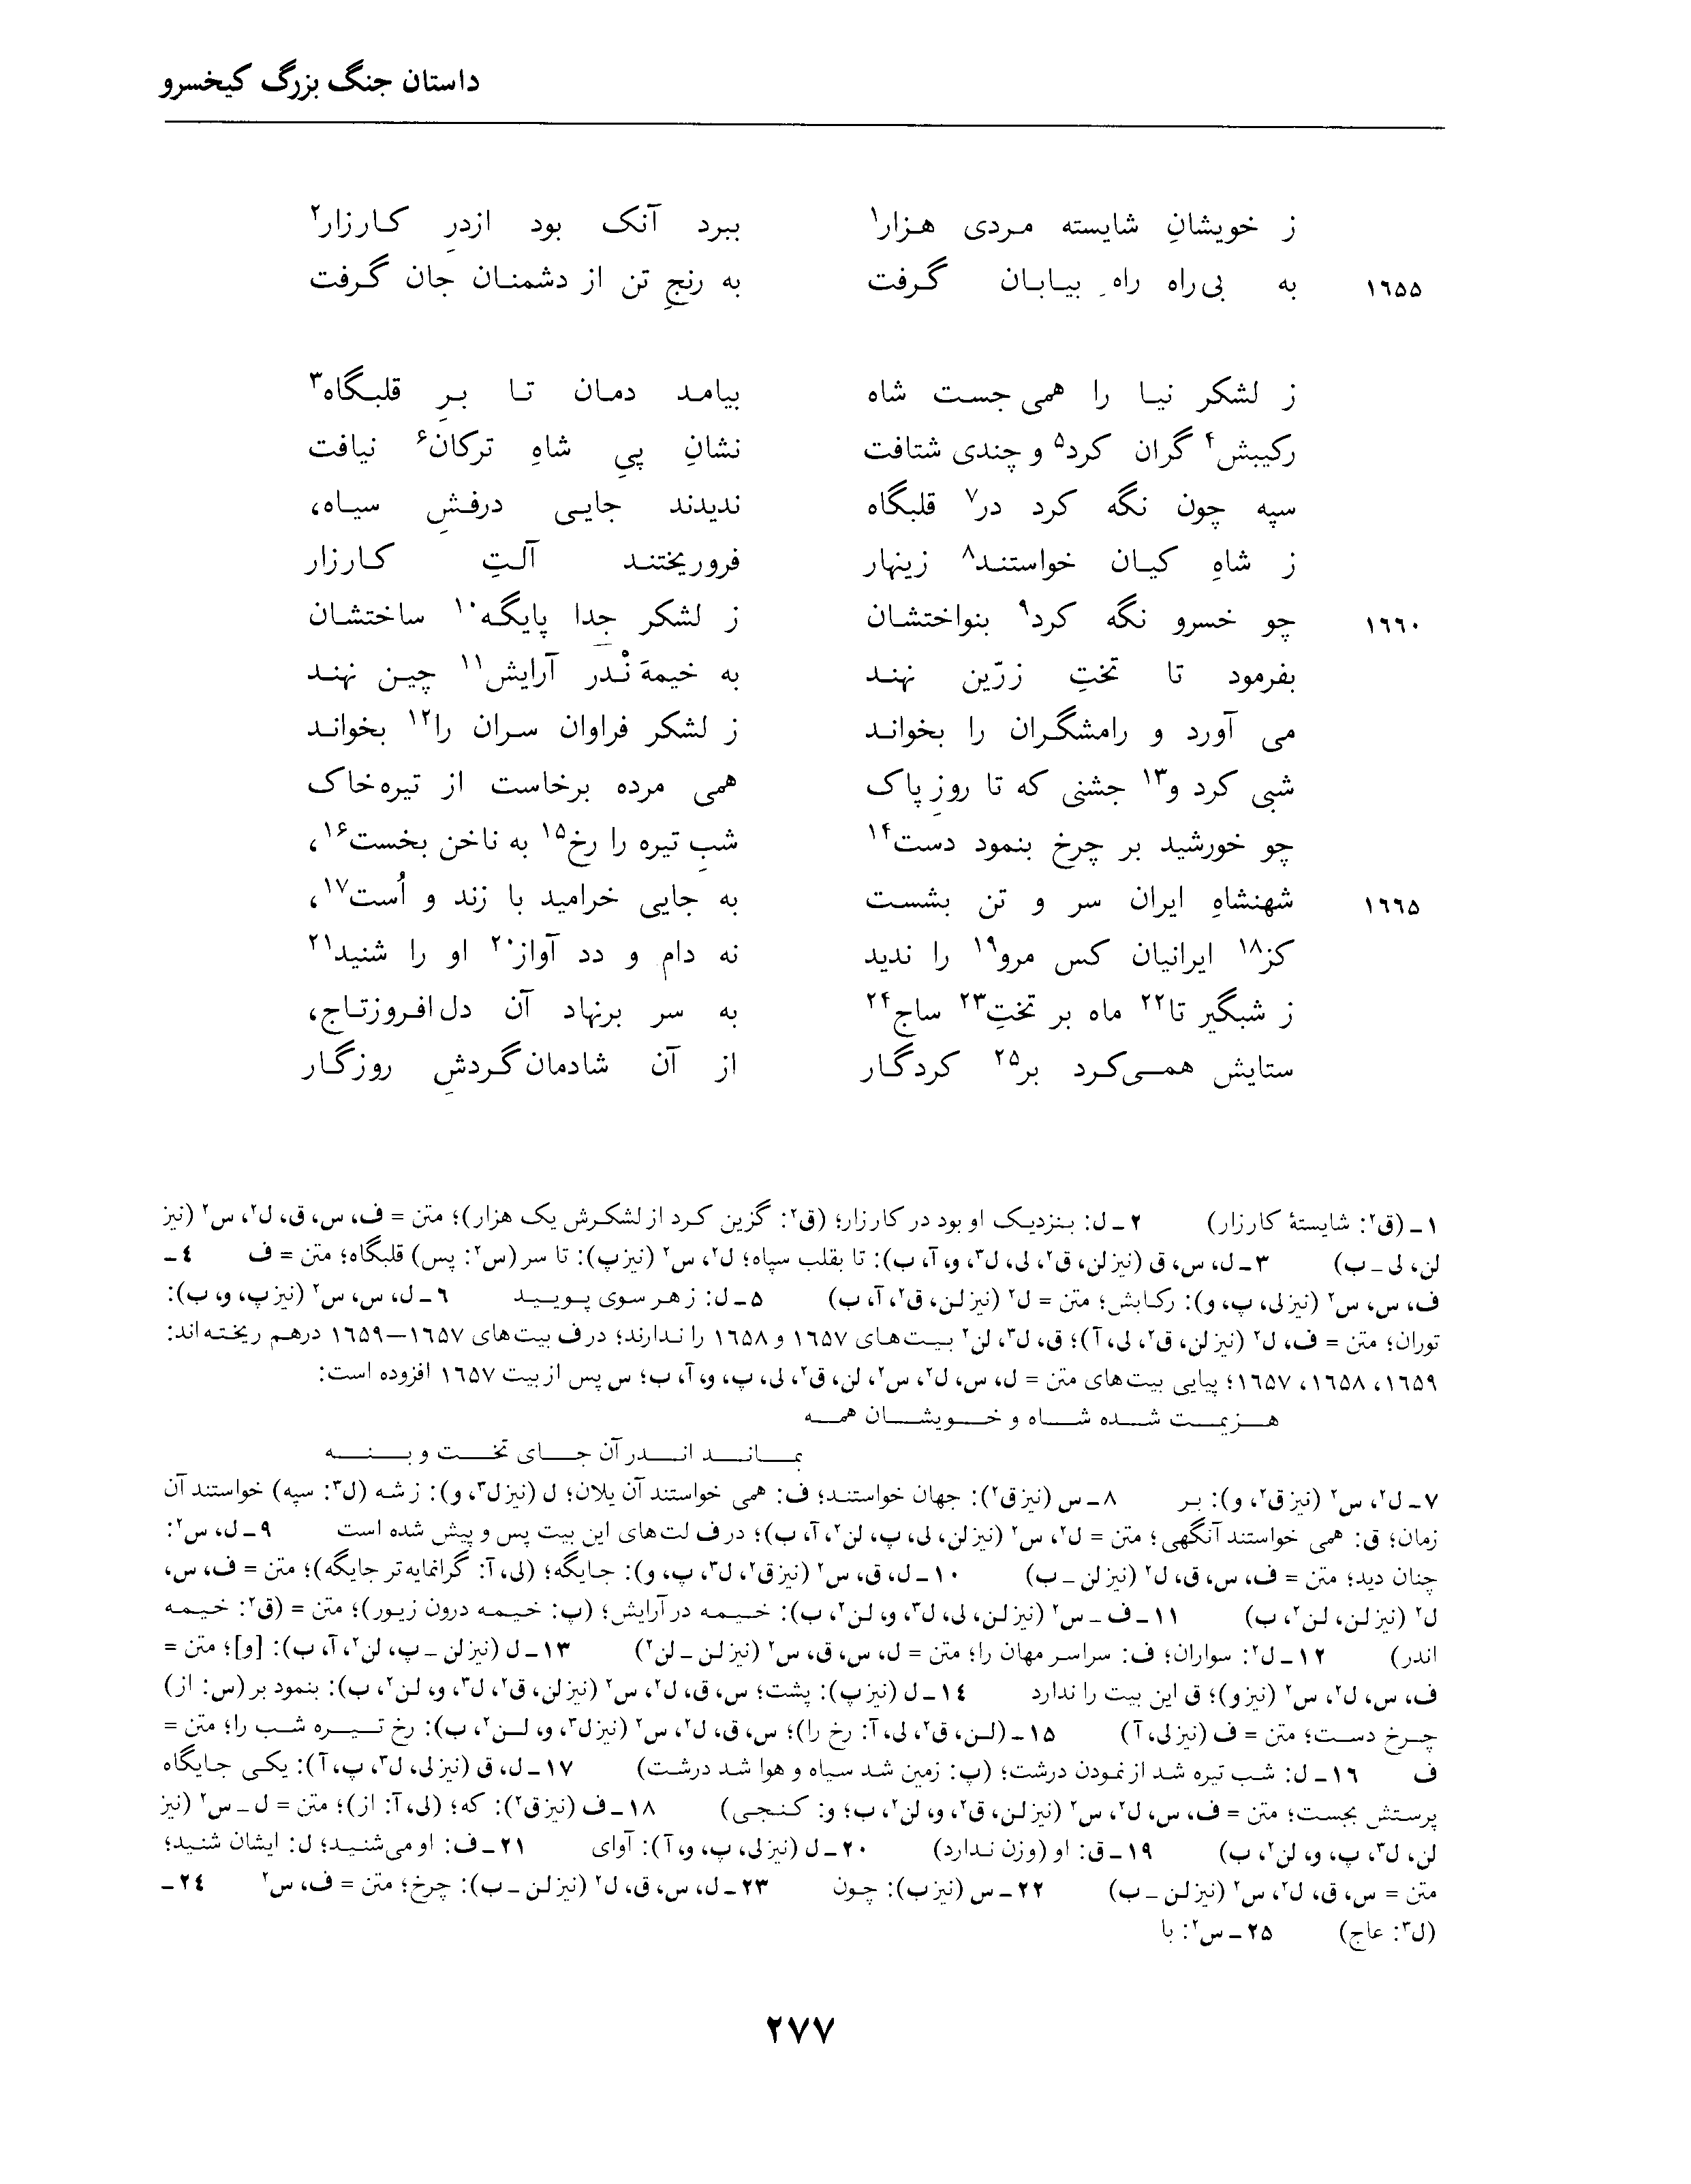 داستان جنگ بزرگ کیخسرو
ز خویشانِ شایسته مردی هزار۱ ببرد آنک بود ازدرِ کارزار۲
۱۶۵۵ به بی‌راه راهِ بیابان گرفت به رنجِ تن از دشمنان جان گرفت
ز لشکر نیا را همی جست شاه بیامد دمان تا برِ قلبگاه۳
رکیبش۴ گران کرد۵ و چندی شتافت نشانِ پیِ شاهِ ترکان۶ نیافت
سپه چون نگه کرد در۷ قلبگاه ندیدند جایی درفشِ سیاه،
ز شاهِ کیان خواستند۸ زینهار فروریختند آلتِ کارزار
۱۶۶۰ چو خسرو نگه کرد۹ بنواختشان ز لشکر جِدا پایگه۱۰ ساختشان
بفرمود تا تختِ زرّین نهند به خیمهَ نْدر آرایش۱۱ چین نهند
می آورد و رامشگران را بخواند ز لشکر فراوان سران را۱۲ بخواند
شبی کرد و۱۳ جشنی که تا روزِ پاک همی مرده برخاست از تیره‌خاک
چو خورشید بر چرخ بنمود دست۱۴ شبِ تیره را رخ۱۵ به ناخن بخست۱۶،
۱۶۶۵ شهنشاهِ ایران سر و تن بشست به جایی خرامید با زند و اُست۱۷،
کز۱۸ ایرانیان کس مرو۱۹ را ندید نه دام و دد آواز۲۰ او را شنید۲۱
ز شبگیر تا۲۲ ماه بر تختِ۲۳ ساج۲۴ به سر برنهاد آن دل‌افروزتاج،
ستایش همی‌کرد بر۲۵ کردگار از آن شادمان گردشِ روزگار
۱ـ (ق۲: شایستهٔ کارزار) ۲ـ ل: بنزدیک او بود در کارزار؛ (ق۲: گزین کرد از لشکرش یک هزار)؛ متن = ف، س، ق، ل۲، س۲ (نیز
لن، لی ـ ب) ۳ـ ل، س، ق (نیز لن، ق۲، لی، ل۳، و، آ، ب): تا بقلب سپاه؛ ل۲، س۲ (نیز پ): تا سر (س۲: پس) قلبگاه؛ متن = ف ۴ـ
ف، س، س۲ (نیز لی، پ، و): رکابش؛ متن = ل۲ (نیز لن، ق۲، آ، ب) ۵ـ ل: ز هر سوی پویید ۶ـ ل، س، س۲ (نیز پ، و، ب):
توران؛ متن = ف، ل۲ (نیز لن، ق۲، لی، آ)؛ ق، ل۳، لن۲ بیت‌های ۱۶۵۷ و ۱۶۵۸ را ندارند؛ در ف بیت‌های ۱۶۵۷—۱۶۵۹ درهم ریخته‌اند:
۱۶۵۹، ۱۶۵۸، ۱۶۵۷؛ پیایی بیت‌های متن = ل، س، ل۲، س۲، لن، ق۲، لی، پ، و، آ، ب؛ س پس از بیت ۱۶۵۷ افزوده است:
هزیمت شده شاه و خویشان همه
بماند اندر آن جای تخت و بنه
۷ـ ل۲، س۲ (نیز ق۲، و): بر ۸ـ س (نیز ق۲): جهان خواستند؛ ف: همی خواستند آن یلان؛ ل (نیز ل۳، و): ز شه (ل۳: سپه) خواستند آن
زمان؛ ق: همی خواستند آنگهی؛ متن = ل۲، س۲ (نیز لن، لی، پ، لن۲، آ، ب)؛ در ف لت‌های این بیت پس و پیش شده است ۹ـ ل، س۲:
چنان دید؛ متن = ف، س، ق، ل۲ (نیز لن ـ ب) ۱۰ـ ل، ق، س۲ (نیز ق۲، ل۳، پ، و): جایگه؛ (لی، آ: گرانمایه‌تر جایگه)؛ متن = ف، س،
ل۲ (نیز لن، لن۲، ب) ۱۱ـ ف ـ س۲ (نیز لن، لی، ل۳، و، لن۲، ب): خیمه در آرایش؛ (پ: خیمه درون زیور)؛ متن = (ق۲: خیمه
اندر) ۱۲ـ ل۲: سواران؛ ف: سراسر مهان را؛ متن = ل، س، ق، س۲ (نیز لن ـ لن۲) ۱۳ـ ل (نیز لن ـ پ، لن۲، آ، ب): [و]؛ متن =
ف، س، ل۲، س۲ (نیز و)؛ ق این بیت را ندارد ۱۴ـ ل (نیز پ): پشت؛ س، ق، ل۲، س۲ (نیز لن، ق۲، ل۳، و، لن۲، ب): بنمود بر (س: از)
چرخ دست؛ متن = ف (نیز لی، آ) ۱۵ـ (لن، ق۲، لی، آ: رخ را)؛ س، ق، ل۲، س۲ (نیز ل۳، و، لن۲، ب): رخ تیره شب را؛ متن =
ف ۱۶ـ ل: شب تیره شد از نمودن درشت؛ (پ: زمین شد سیاه و هوا شد درشت) ۱۷ـ ل، ق (نیز لی، ل۳، پ، آ): یکی جایگاه
پرستش بجست؛ متن = ف، س، ل۲، س۲ (نیز لن، ق۲، و، لن۲، ب؛ و: کنجی) ۱۸ـ ف (نیز ق۲): که؛ (لی، آ: از)؛ متن = ل ـ س۲ (نیز
لن، ل۳، پ، و، لن۲، ب) ۱۹ـ ق: او (وزن ندارد) ۲۰ـ ل (نیز لی، پ، و، آ): آوای ۲۱ـ ف: او می‌شنید؛ ل: ایشان شنید؛
متن = س، ق، ل۲، س۲ (نیز لن ـ ب) ۲۲ـ س (نیز ب): چون ۲۳ـ ل، س، ق، ل۲ (نیز لن ـ ب): چرخ؛ متن = ف، س۲ ۲۴ـ
(ل۳: عاج) ۲۵ـ س۲: با
۲۷۷